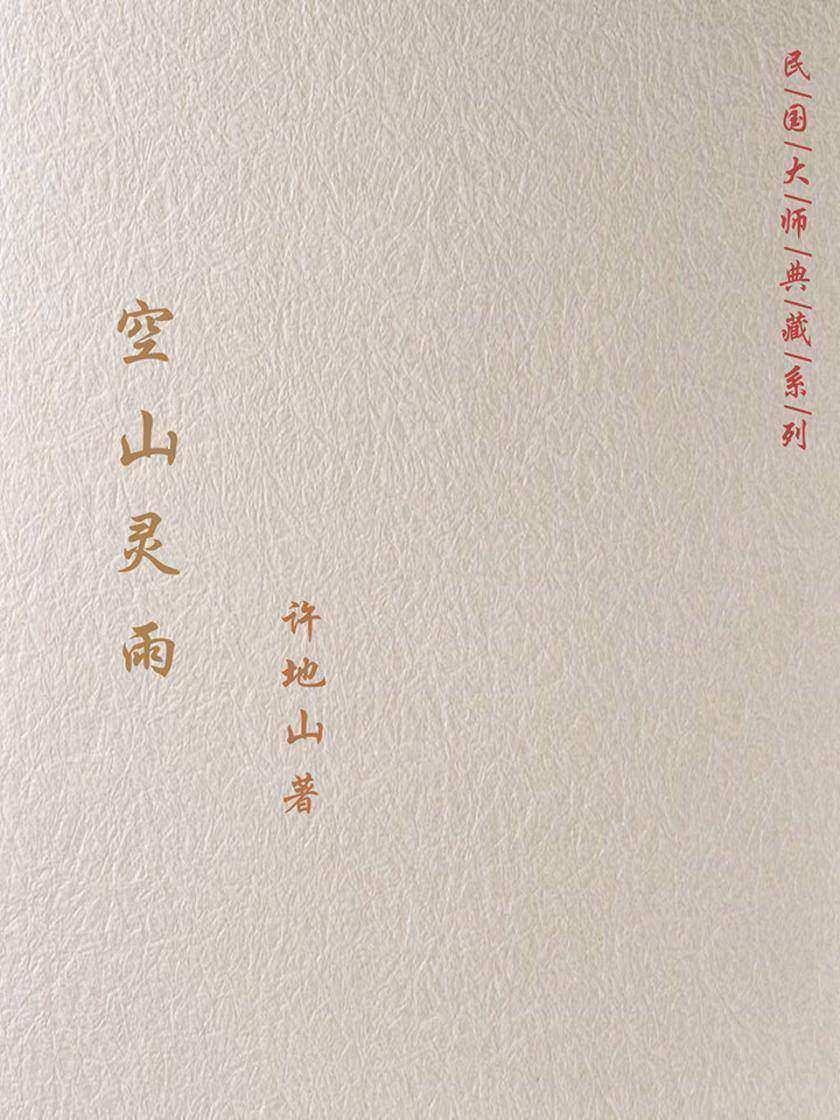 民|国|大|师|典|藏|系|列
空山灵雨
许地山著